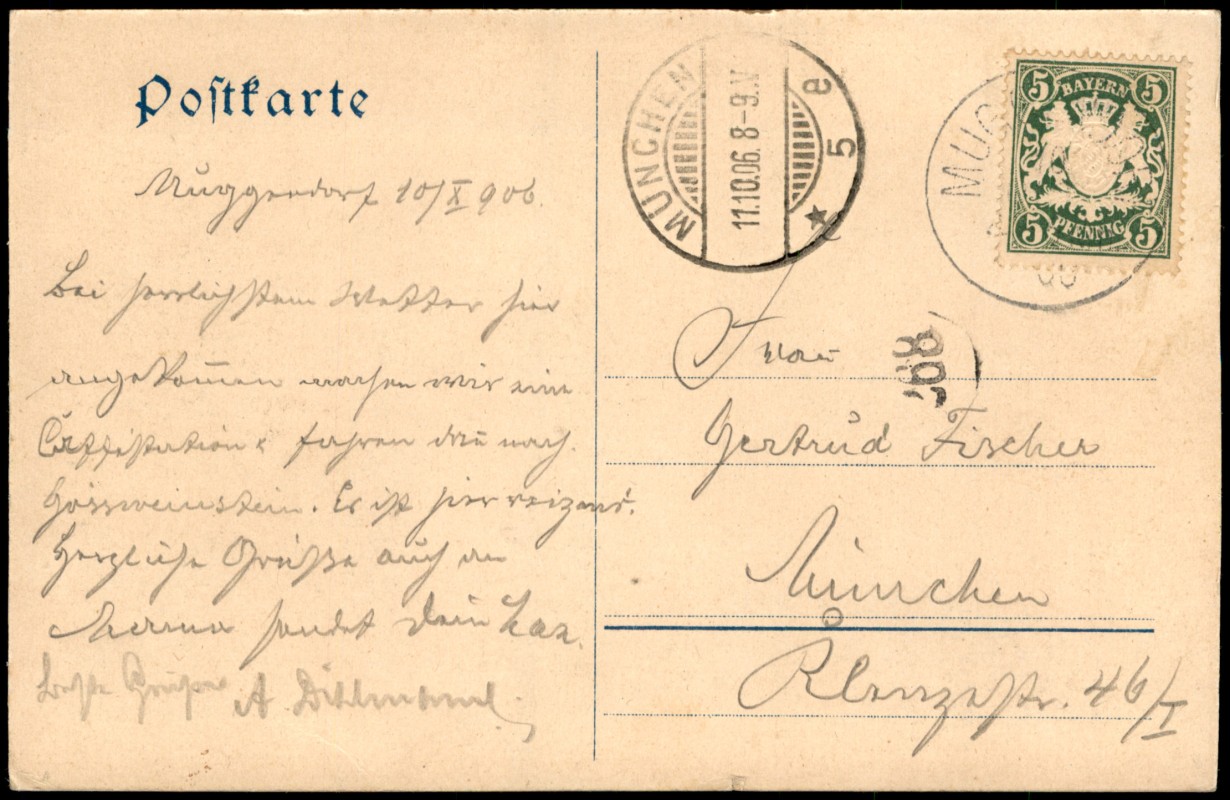 Postkarte
Muggendorf 10/X 906.
Bei herrlichstem Wetter hier
angekom̅en machen wir eine
Caffestation & fahren dan̅ nach
Gössweinstein. Es ist hier reizend.
Herzliche Grüße auch an
Mama sendet Dein
Beste Grüße A. Dihlmann.
MÜNCHEN
11.10.06. 8-9.V.
e
5
5 BAYERN 5
5 PFENNIG 5
MUG
06
Frau
Gertrud Fischer
München
Klenzestr. 46/I